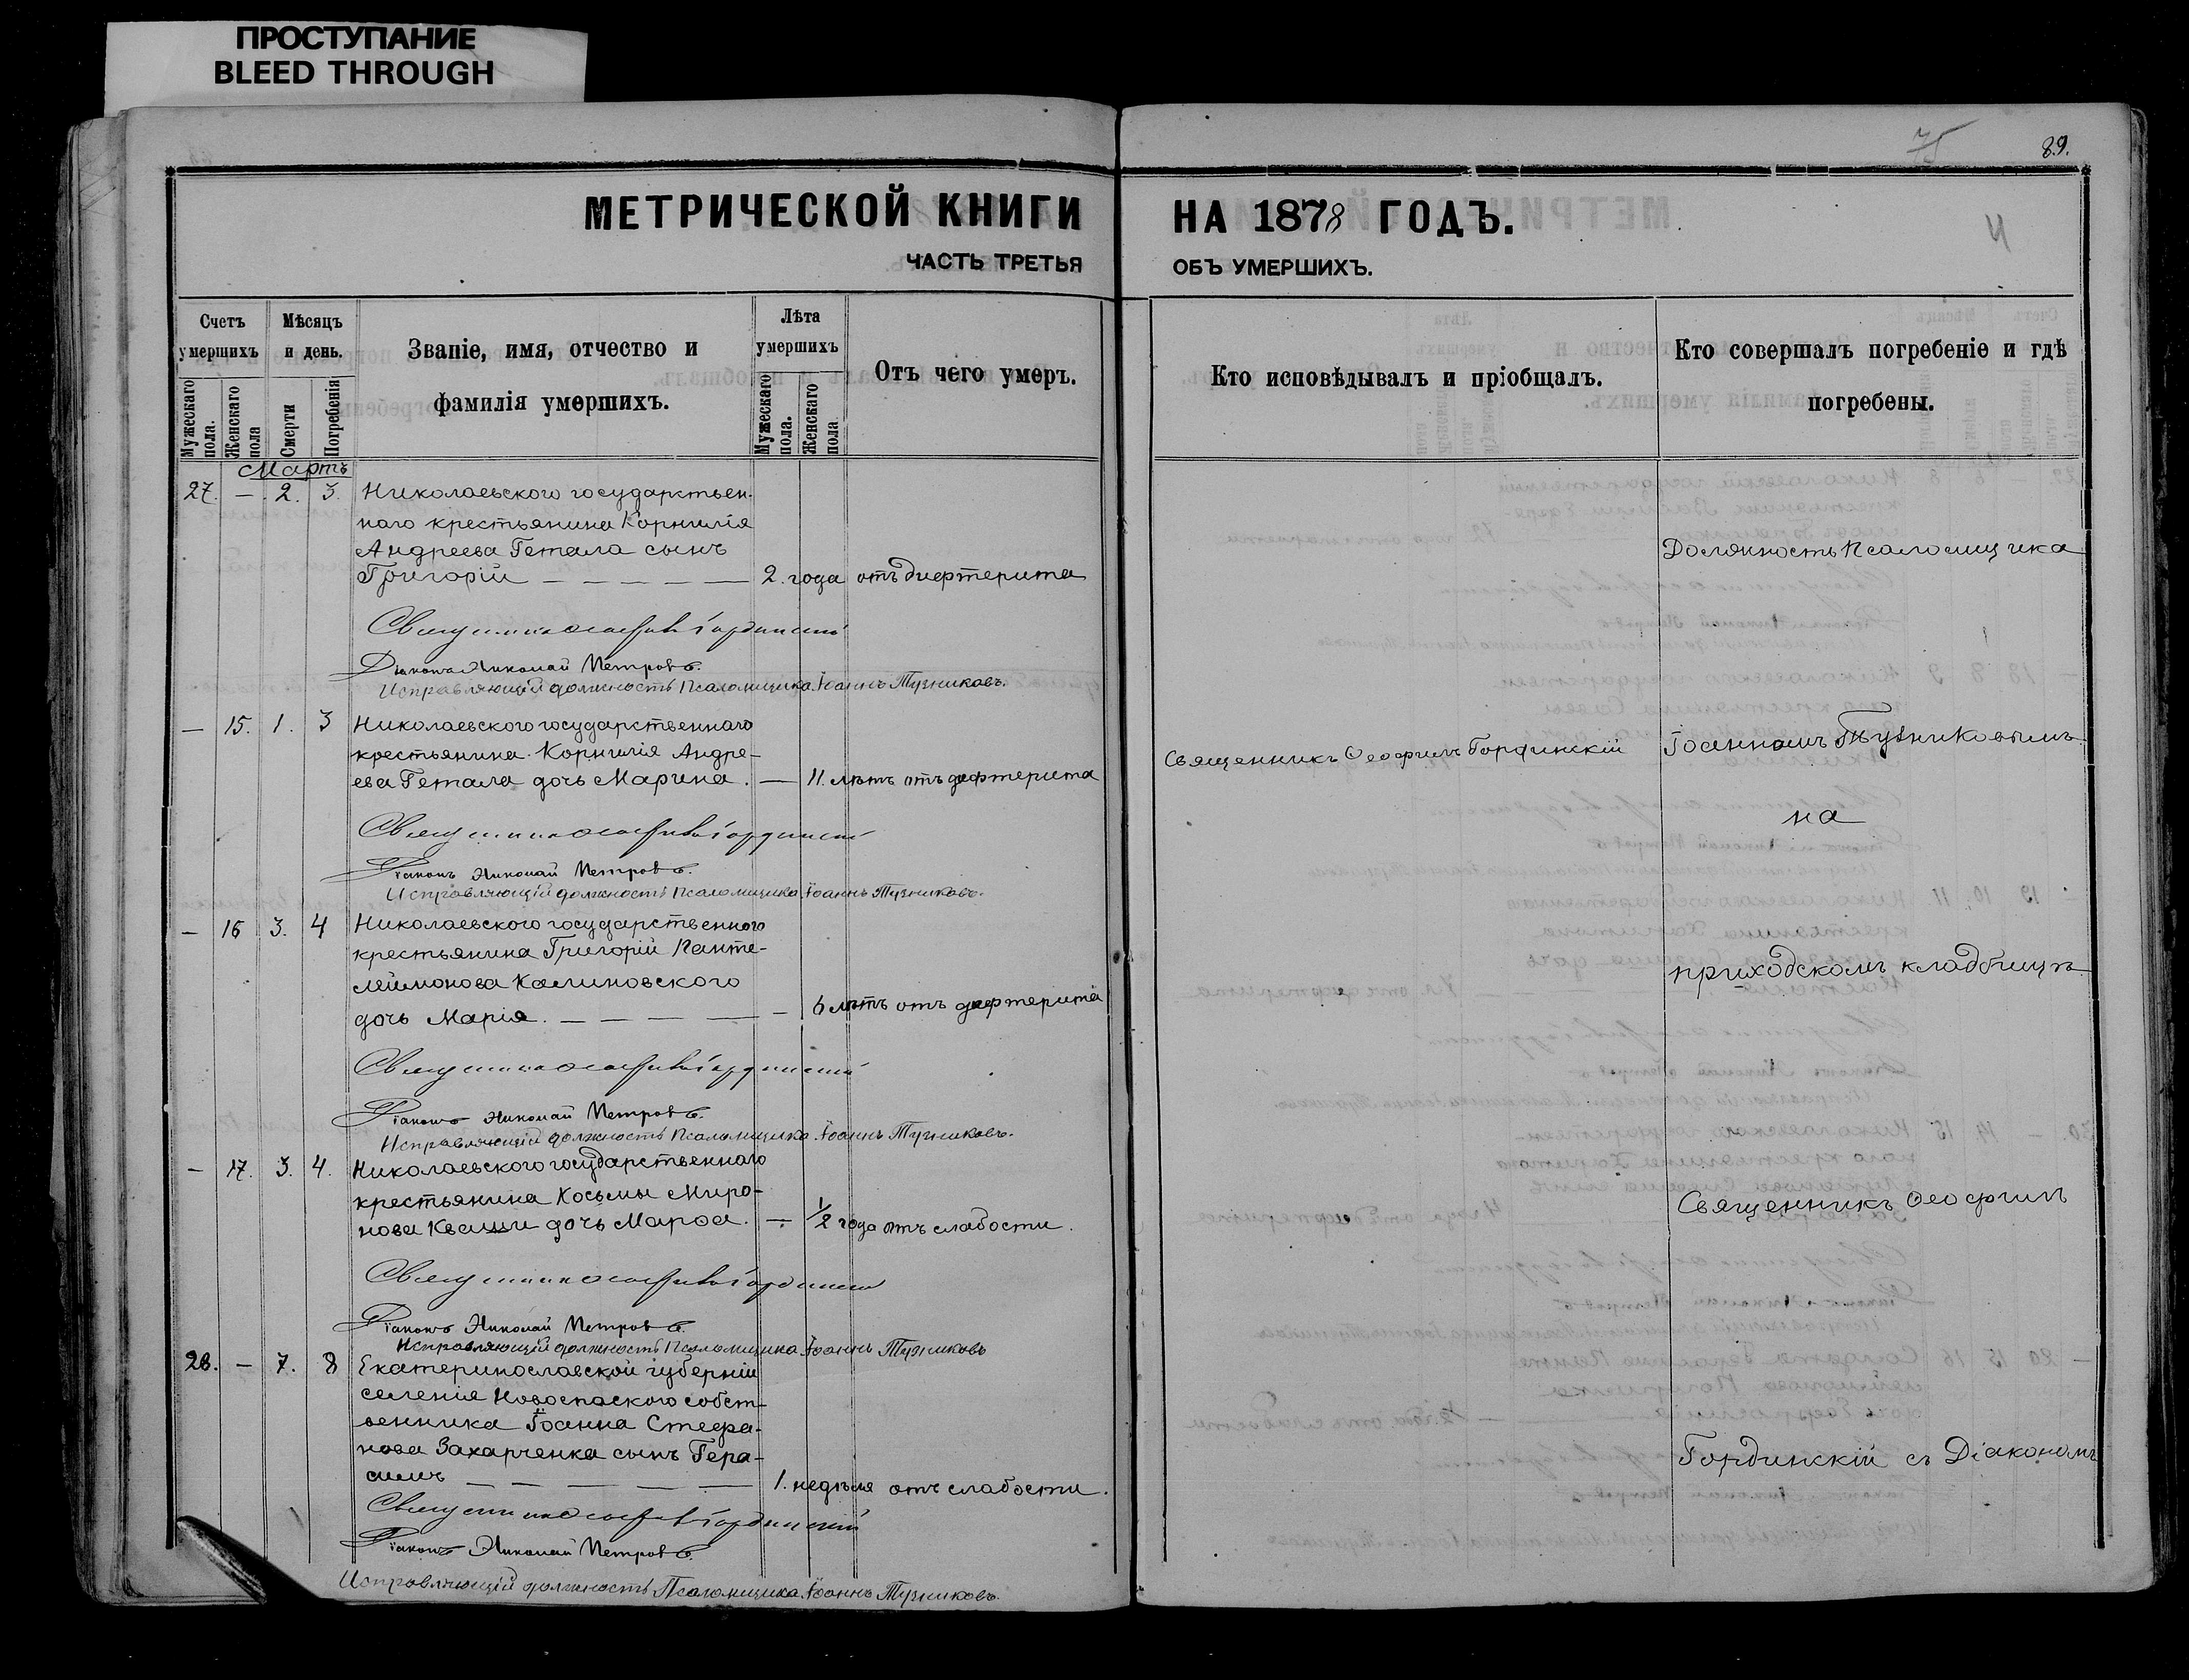 ПРОСТУПАНИЕ
BLEED THROUGH
75
89.
МЕТРИЧЕСКОЙ КНИГИ
НА 1878 ГОДЪ.
ЧАСТЬ ТРЕТЬЯ
ОБЪ УМЕРШИХЪ.
Счетъ умершихъ
Мужескаго пола.
Женскаго пола
Мѣсяцъ и день.
Смерти
Погребенія
Званіе, имя, отчество и
фамилія умершихъ.
Лѣта умершихъ
Мужескаго пола.
Женскаго пола
Отъ чего умеръ.
Кто исповѣдывалъ и пріобщалъ.
Кто совершалъ погребеніе и гдѣ
погребены.
Мартъ
27. — 2. 3. Николаевского государствен-
наго крестьянина Корнилія
Андреева Гетала сынъ
Григорій — — — — — 2. года отъ дифтерита
Священникъ Ѳеофилъ Гординскій
Діаконъ Николай Петровъ.
Исправляющій должность Псаломщика Іоаннъ Тузниковъ.
— 15. 1. 3 Николаевского государственнаго
крестьянина Корнилія Андре-
ева Гетала дочь Марина. — 11. лѣтъ отъ дифтерита
Священникъ Ѳеофилъ Гординскій
Діаконъ Николай Петровъ.
Исправляющій должность Псаломщика Іоаннъ Тузниковъ.
— 16 3. 4 Николаевского государственного
крестьянина Григорій Панте-
леймонова Калиновского
дочь Марія. — — — — — 6 лѣтъ отъ дифтерита
Священникъ Ѳеофилъ Гординскій
Діаконъ Николай Петровъ.
Исправляющій должность Псаломщика Іоаннъ Тузниковъ.
— 17. 3. 4. Николаевского государственнаго
крестьянина Косьмы Миро-
нова Кваши дочь Мароа. — ½ года отъ слабости.
Священникъ Ѳеофилъ Гординскій
Діаконъ Николай Петровъ.
Исправляющій должность Псаломщика Іоаннъ Тузниковъ
28. — 7. 8 Екатеринославской губерніи
селенія Новоспаского собст-
венника Іоанна Стефа-
нова Захарченка сынъ Гера-
симъ — — — — — 1. недѣля отъ слабости.
Священникъ Ѳеофилъ Гординскій
Діаконъ Николай Петровъ.
Исправляющій должность Псаломщика Іоаннъ Тузниковъ.
Священникъ Ѳеофилъ Гординскій
Должность Псаломщика
Іоанномъ Тузниковымъ
на
приходскомъ кладбищѣ
Священникъ Ѳеофилъ
Гординскій съ Діакономъ